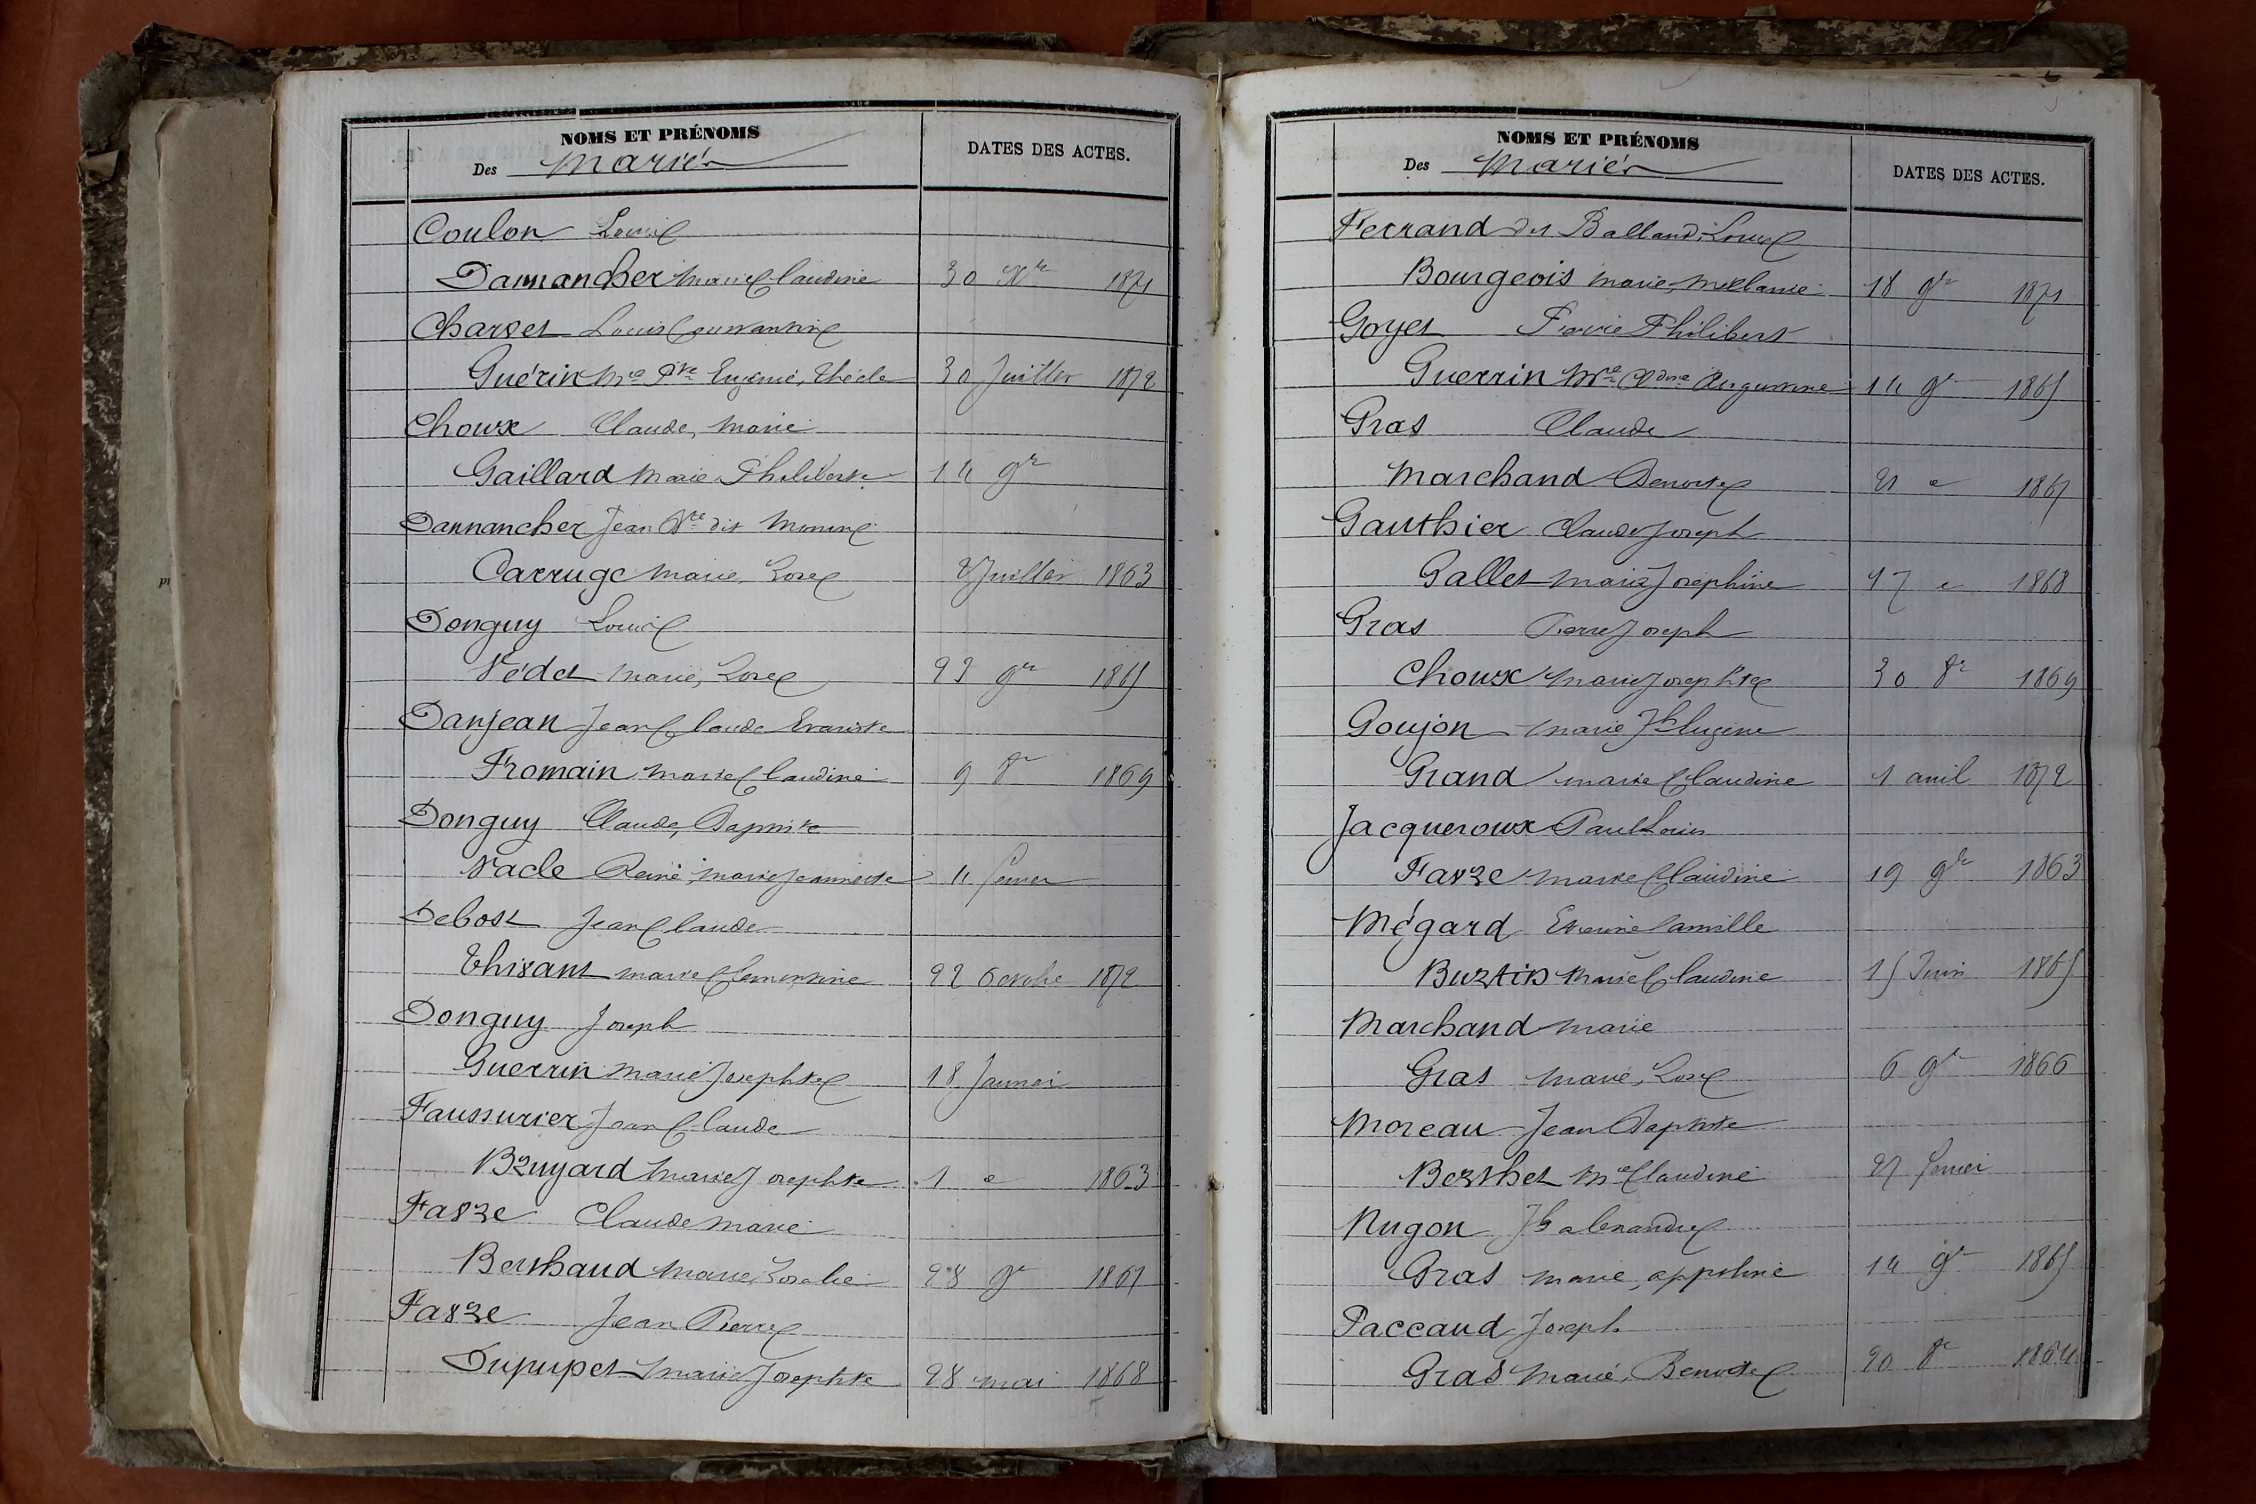 NOMS ET PRÉNOMS
Des Mariés
DATES DES ACTES.
Coulon Louis
Dannancher Marie Claudine 30 Xbre 1871
Charvet Louis Constantin
Guérin Mie Eugénie, Thécle 30 Juillet 1872
Choux Claude, Marie
Gaillard Marie Philiberte 14 9bre
Dannancher Jean Bte dit
Carruge Marie, Rose Juillet 1863
Donguy Louis
Védet Marie, Rose 23 9bre 1865
Danjean Jean Claude Evariste
Fromain Marie Claudine 9 8bre 1869
Donguy Claude, Baptiste
Vacle Reine, Marie Jeannette 4 février
Debost Jean Claude
Thivant Marie Clementine 22 Octobre 1872
Donguy Joseph
Guerrin Marie Josephte 18 Janvier
Faussurier Jean Claude
Bruyard Marie Josephte 1 e 1863
Favre Claude Marie
Berthaud Marie, Rosalie 28 9bre 1867
Favre Jean Pierre
Dupupet Marie Josephte 28 mai 1868
NOMS ET PRÉNOMS
Des Mariés
DATES DES ACTES.
Ferrand dit Balland, Louis
Bourgeois Marie, Mélanie 18 9bre 1871
Goyet Pierre Philibert
Guerrin Mie Cdine Augustine 14 9bre 1865
Gras Claude
Marchand Benoite 21 e 1867
Gauthier Claude Joseph
Gallet Marie Josephine 17 e 1868
Gras Pierre Joseph
Choux Marie Josephte 30 8bre 1869
Goujon Marie Jh Eugène
Grand Marie Claudine 1 avril 1872
Jacqueroux Paul Louis
Favre Marie Claudine 19 9bre 1863
Mégard Etienne Camille
Burtin Marie Claudine 15 Juin 1865
Marchand Marie
Gras Marie, Rose 6 9bre 1866
Moreau Jean Baptiste
Berthet Mie Claudine 27 février
Nugon Jh alexandre
Gras Marie, appoline 14 9bre 1865
Paccaud Joseph
Gras Marie, Benoite 20 8bre 1864